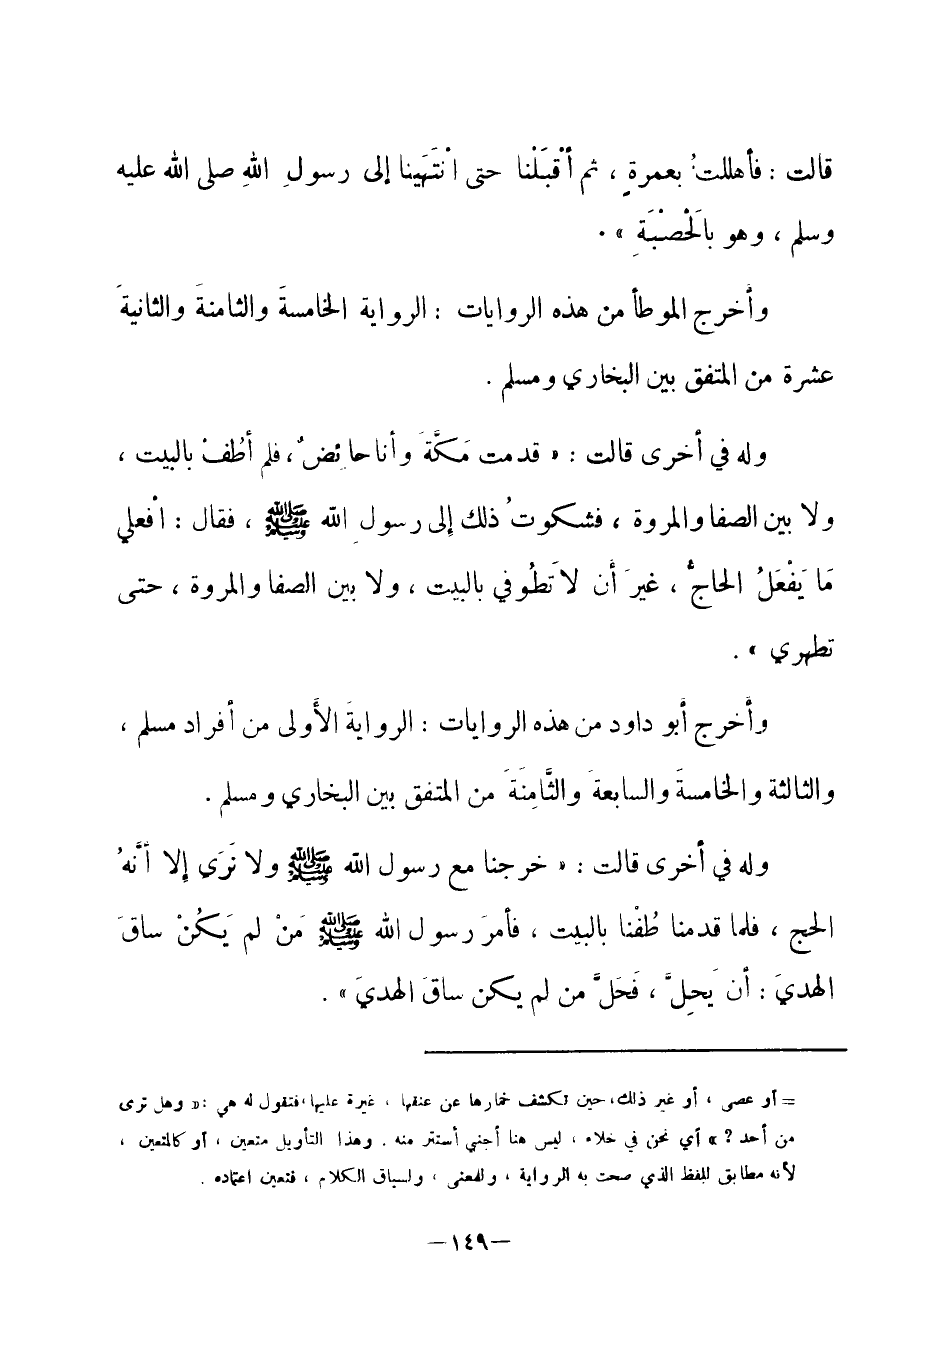 قالت : فأهللتُ بعمرةٍ ، ثم أَقْبَلْنا حتى انْتَهَينا إلى رسولِ اللهِ صلى الله عليه
وسلم ، وهو بالَحْصْبَةِ » .
وأَخرج الموطأ من هذه الروايات : الرواية الخامسةَ والثامنةَ والثانيةَ
عشرة من المتفق بين البخاري ومسلم .
وله في أخرى قالت : « قدمت مَكَّةَ وأنا حائِضٌ ، فلم أَطُفْ بالبيت ،
ولا بين الصفا والمروة ، فشكوتُ ذلك إلى رسولِ الله ﷺ ، فقال : افْعلي
مَا يَفْعَلُ الحاجُّ ، غيرَ أن لا تَطُوفي بالبيت ، ولا بين الصفا والمروة ، حتى
تطهري » .
وأَخرج أَبو داود من هذه الروايات : الروايةَ الأُولى من أفراد مسلم ،
والثالثة والخامسةَ والسابعةَ والثَّامِنَةَ من المتفق بين البخاري ومسلم .
وله في أخرى قالت : « خرجنا مع رسول الله ﷺ ولا نَرَى إلا أَنَّهُ
الحج ، فلما قدمنا طُفْنا بالبيت ، فأمرَ رسول الله ﷺ مَنْ لم يَكُنْ ساقَ
الهديَ : أن يَحِلَّ ، فَحَلَّ من لم يكن ساقَ الهديَ » .
= أو عصى ، أو غير ذلك، حين تكشف خمارها عن عنقها ، غيرة عليها، فتقول له هي :« وهل ترى
من أحد ? » أي نحن في خلاء ، ليس هنا أجنبي أستتر منه . وهذا التأويل متعين ، أو كالمتعين ،
لأنه مطابق للفظ الذي صحت به الرواية ، والمعنى ، ولسياق الكلام ، فتعين اعتماده .
— ١٤٩ —